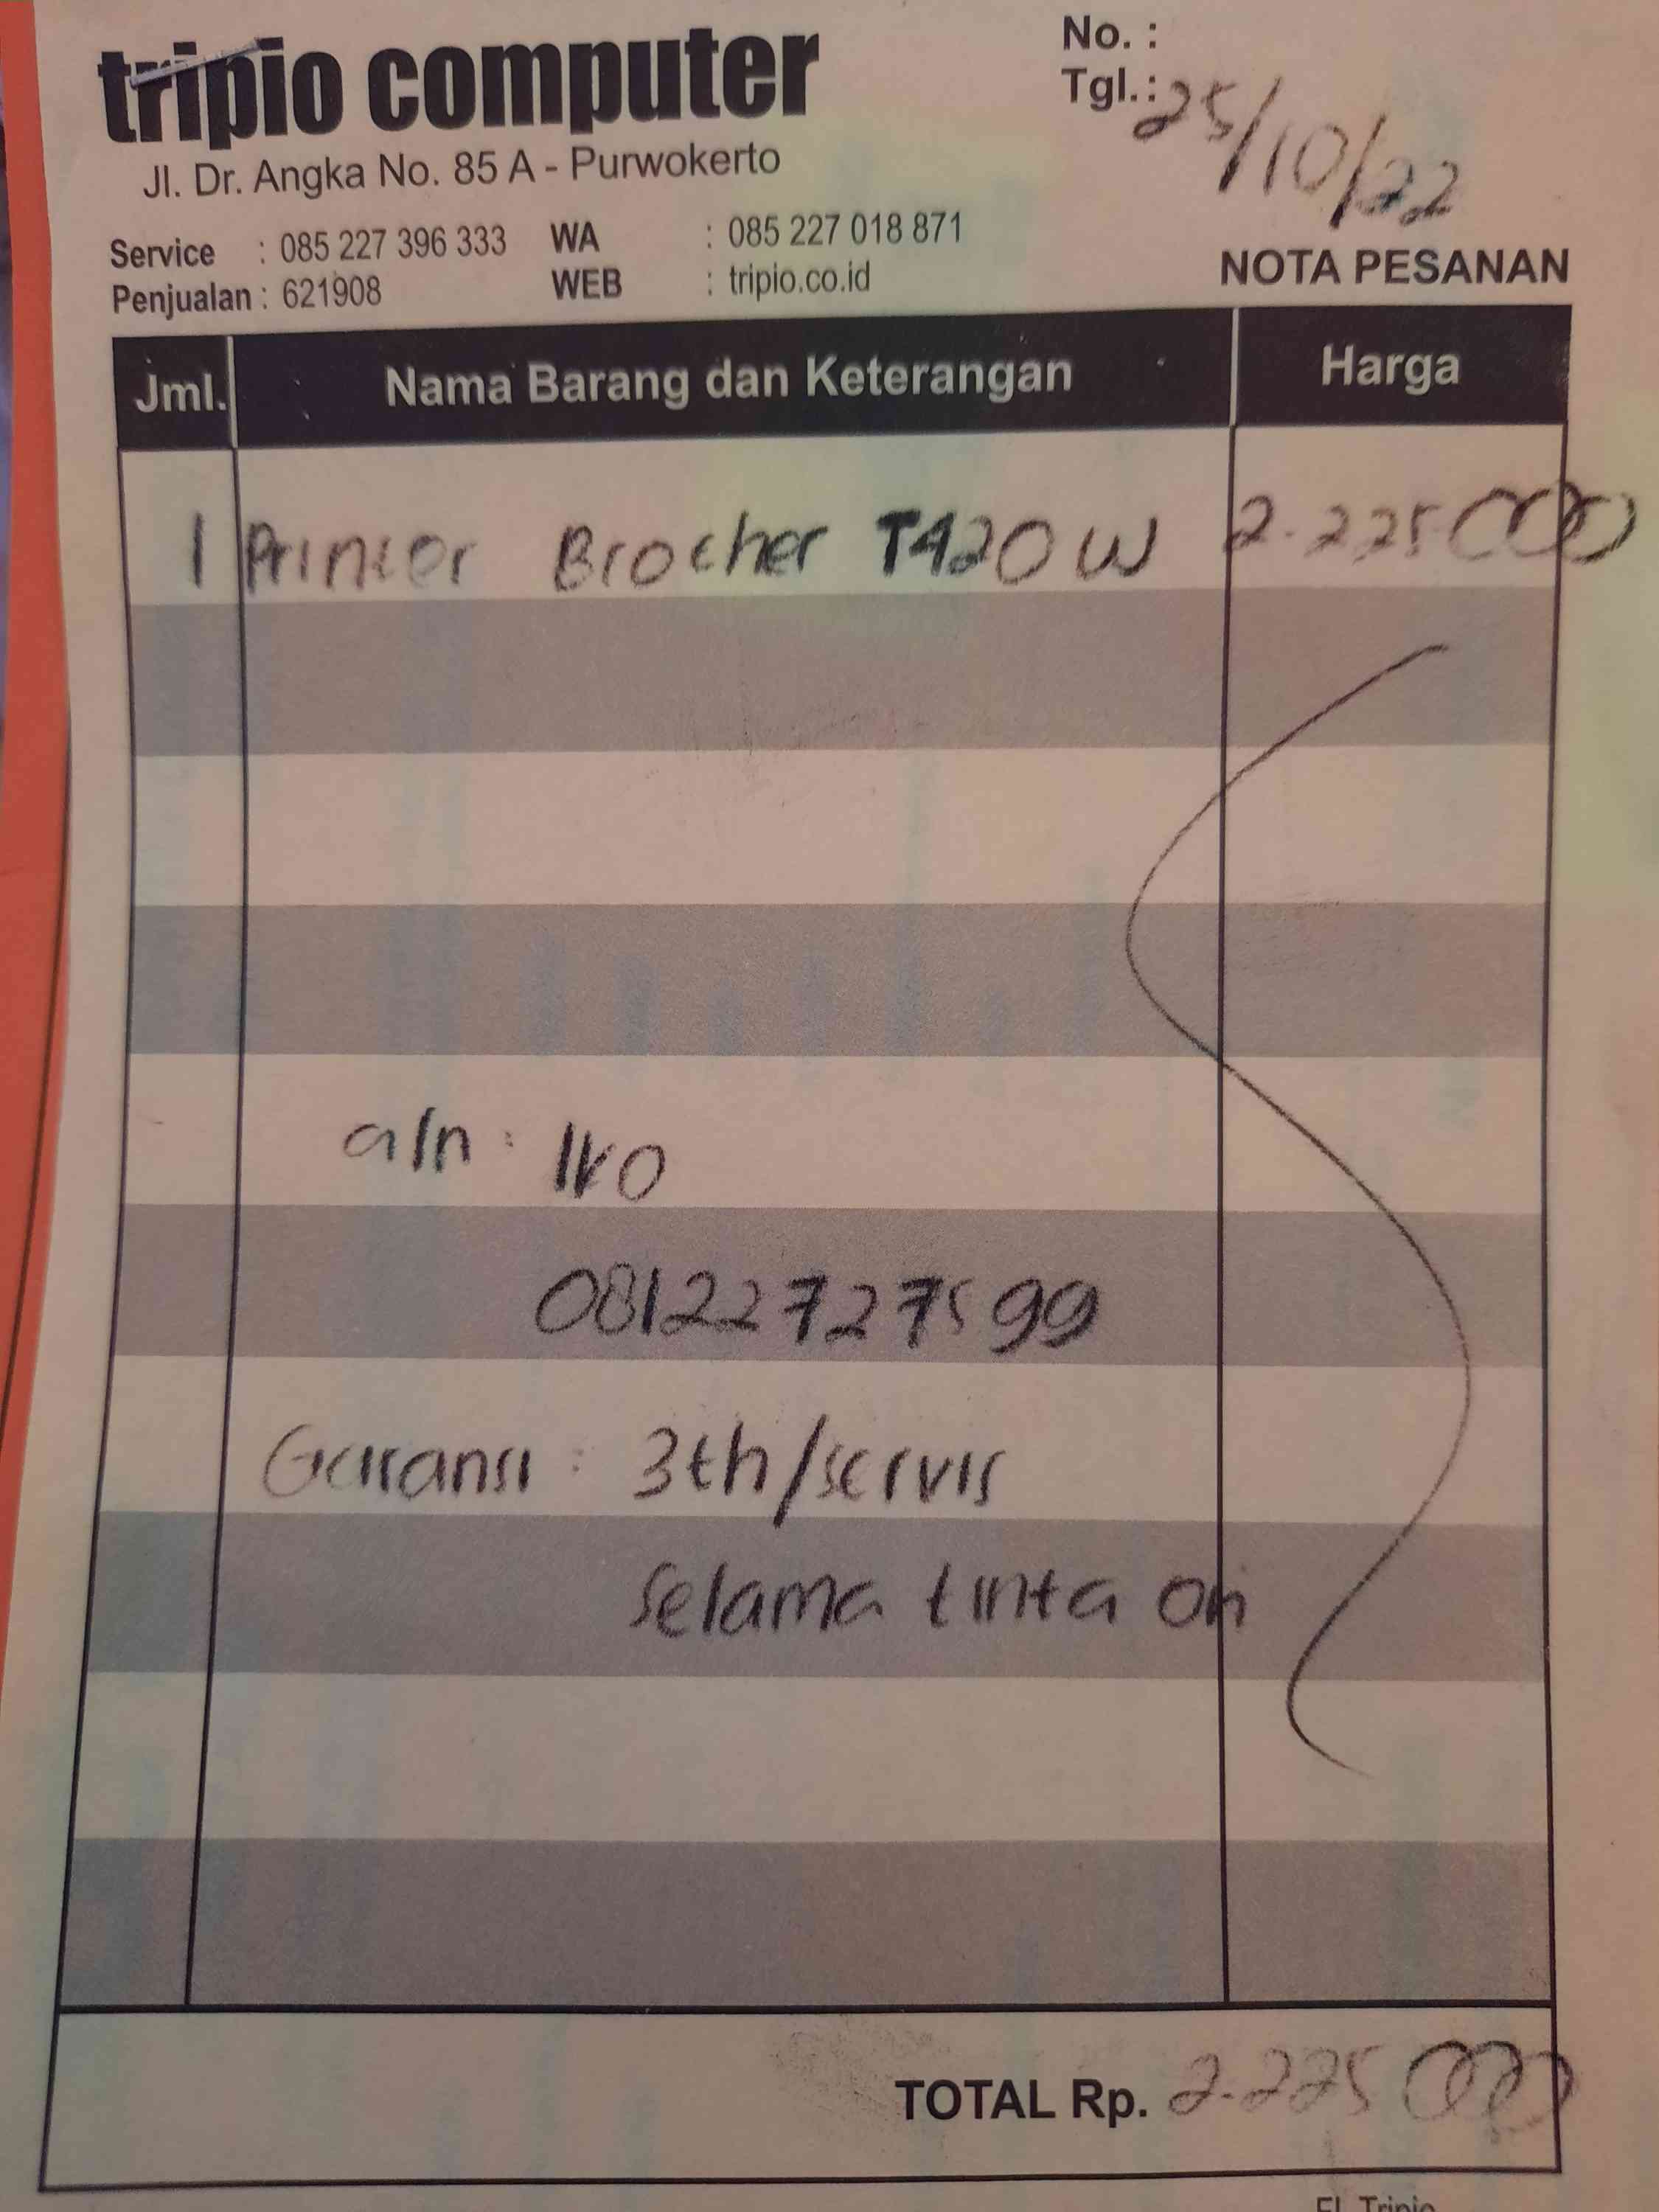 tripio computer
Jl. Dr. Angka No. 85 A - Purwokerto
No. :
Tgl.: 25/10/22
Service : 085 227 396 333 WA : 085 227 018 871
Penjualan : 621908 WEB : tripio.co.id
NOTA PESANAN
Jml. Nama Barang dan Keterangan Harga
1 Printer Brother T420W 2.225000
a/n : IVO
08122727599
Garansi : 3th/servis
Selama tinta ori
TOTAL Rp. 2.225000